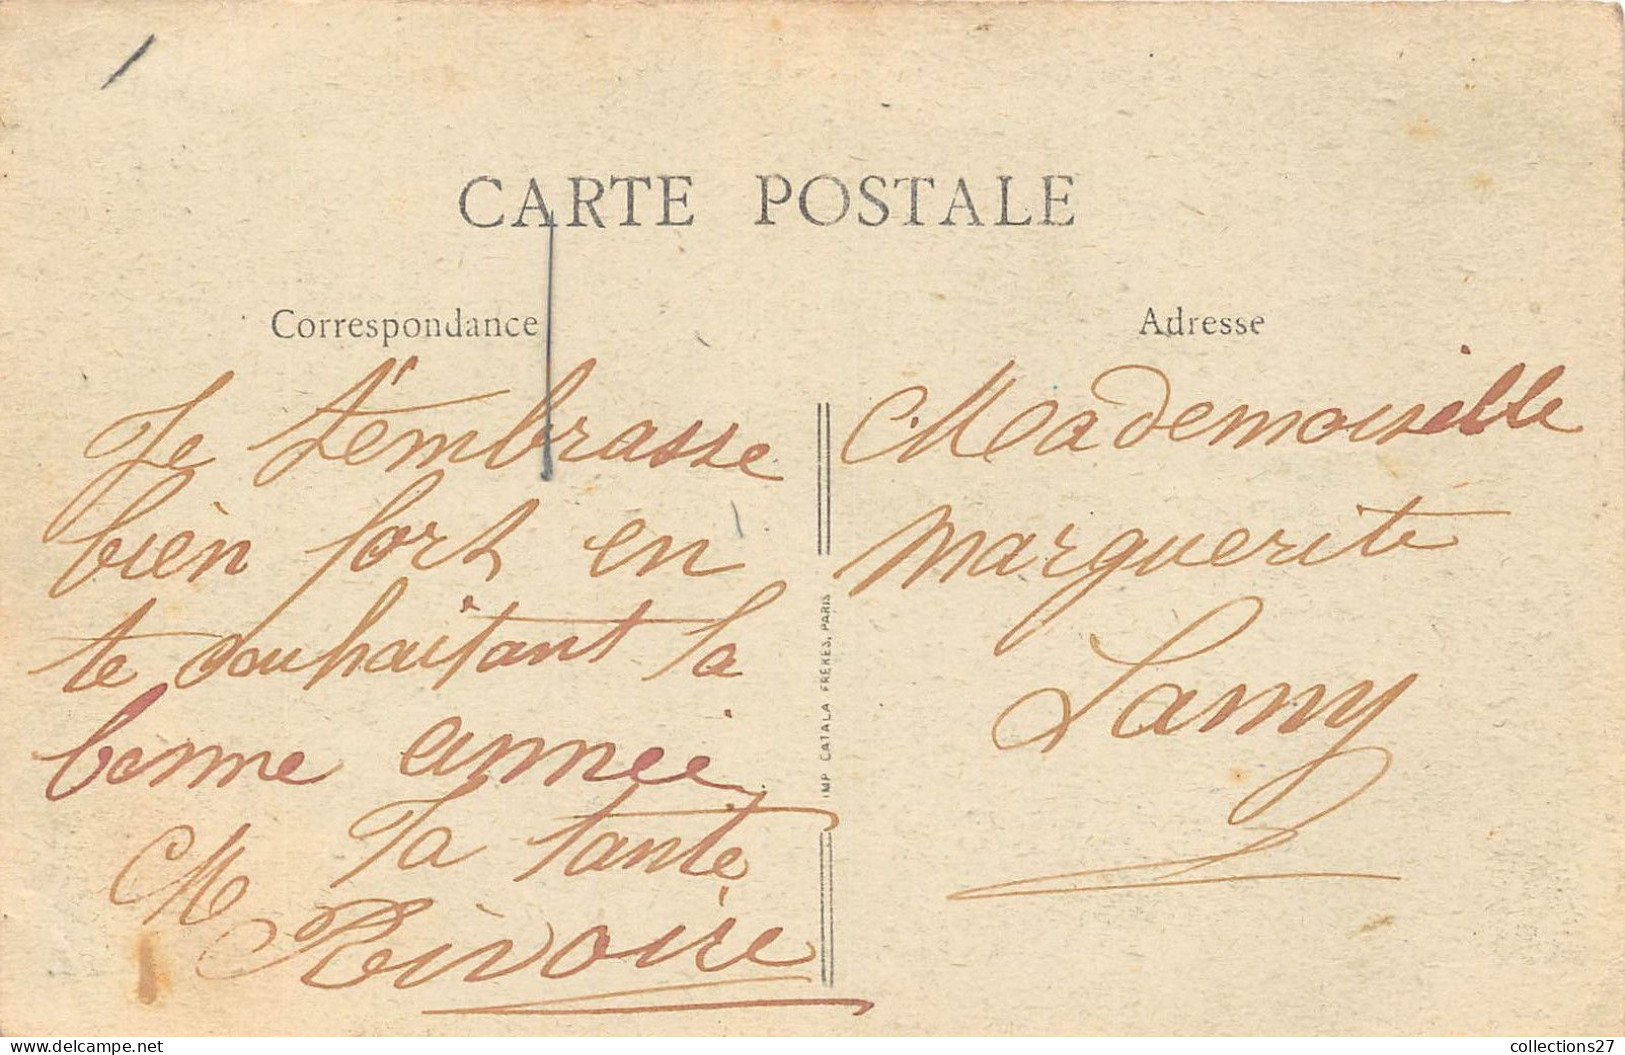 CARTE POSTALE
Correspondance
Je t'embrasse
bien fort en
te souhaitant la
bonne année
Ta tante
M Rivoire
IMP CATALA FRÈRES, PARIS
Adresse
Mademoiselle
Marguerite
Lamy
delcampe.net
collections27